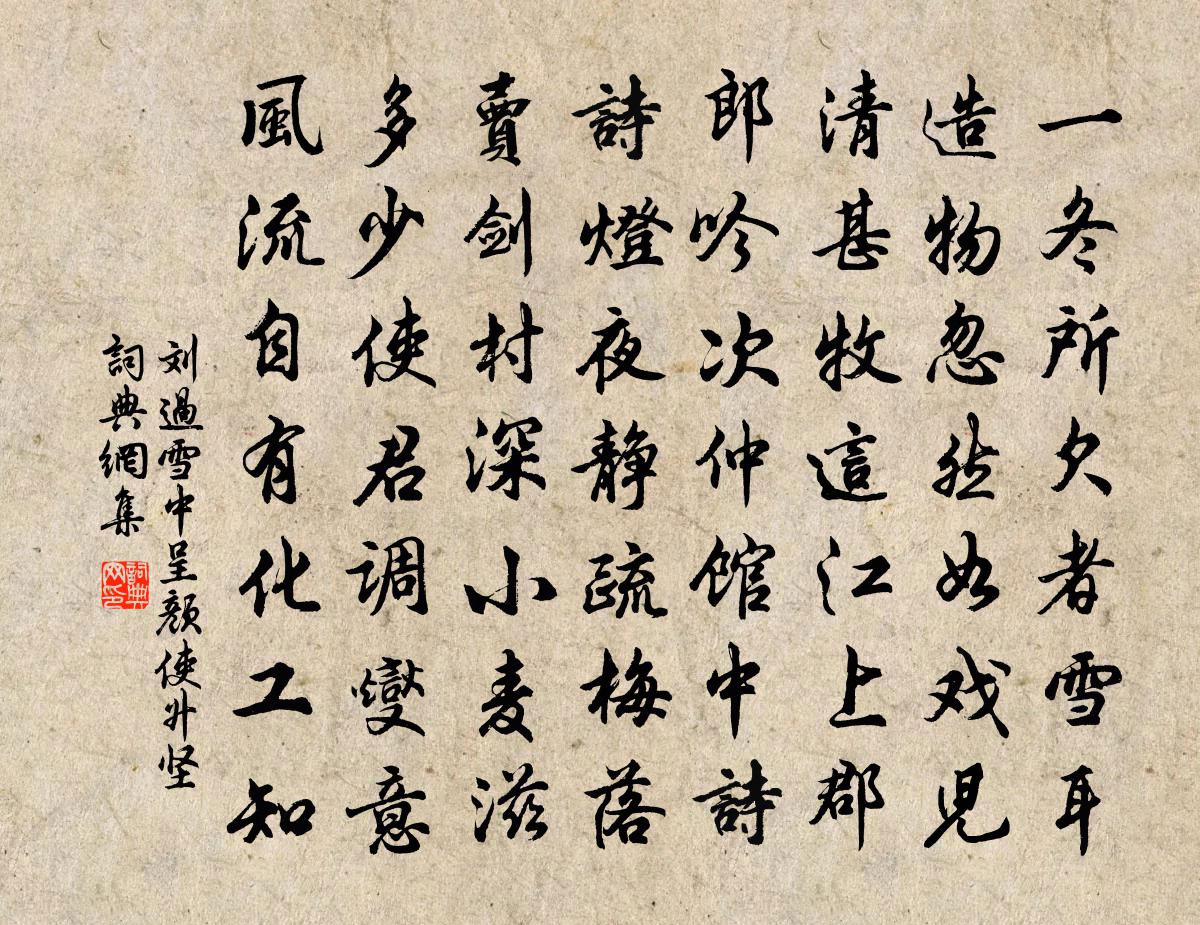 一冬所欠者雪耳
造物忽然如戏児
清甚牧這江上郡
郎吟次仲館中詩
詩燈夜静疏梅落
賣剑村深小麦滋
多少使君调燮意
風流自有化工知
刘過雪中呈顔使升坚
詞典網集
詞典网印